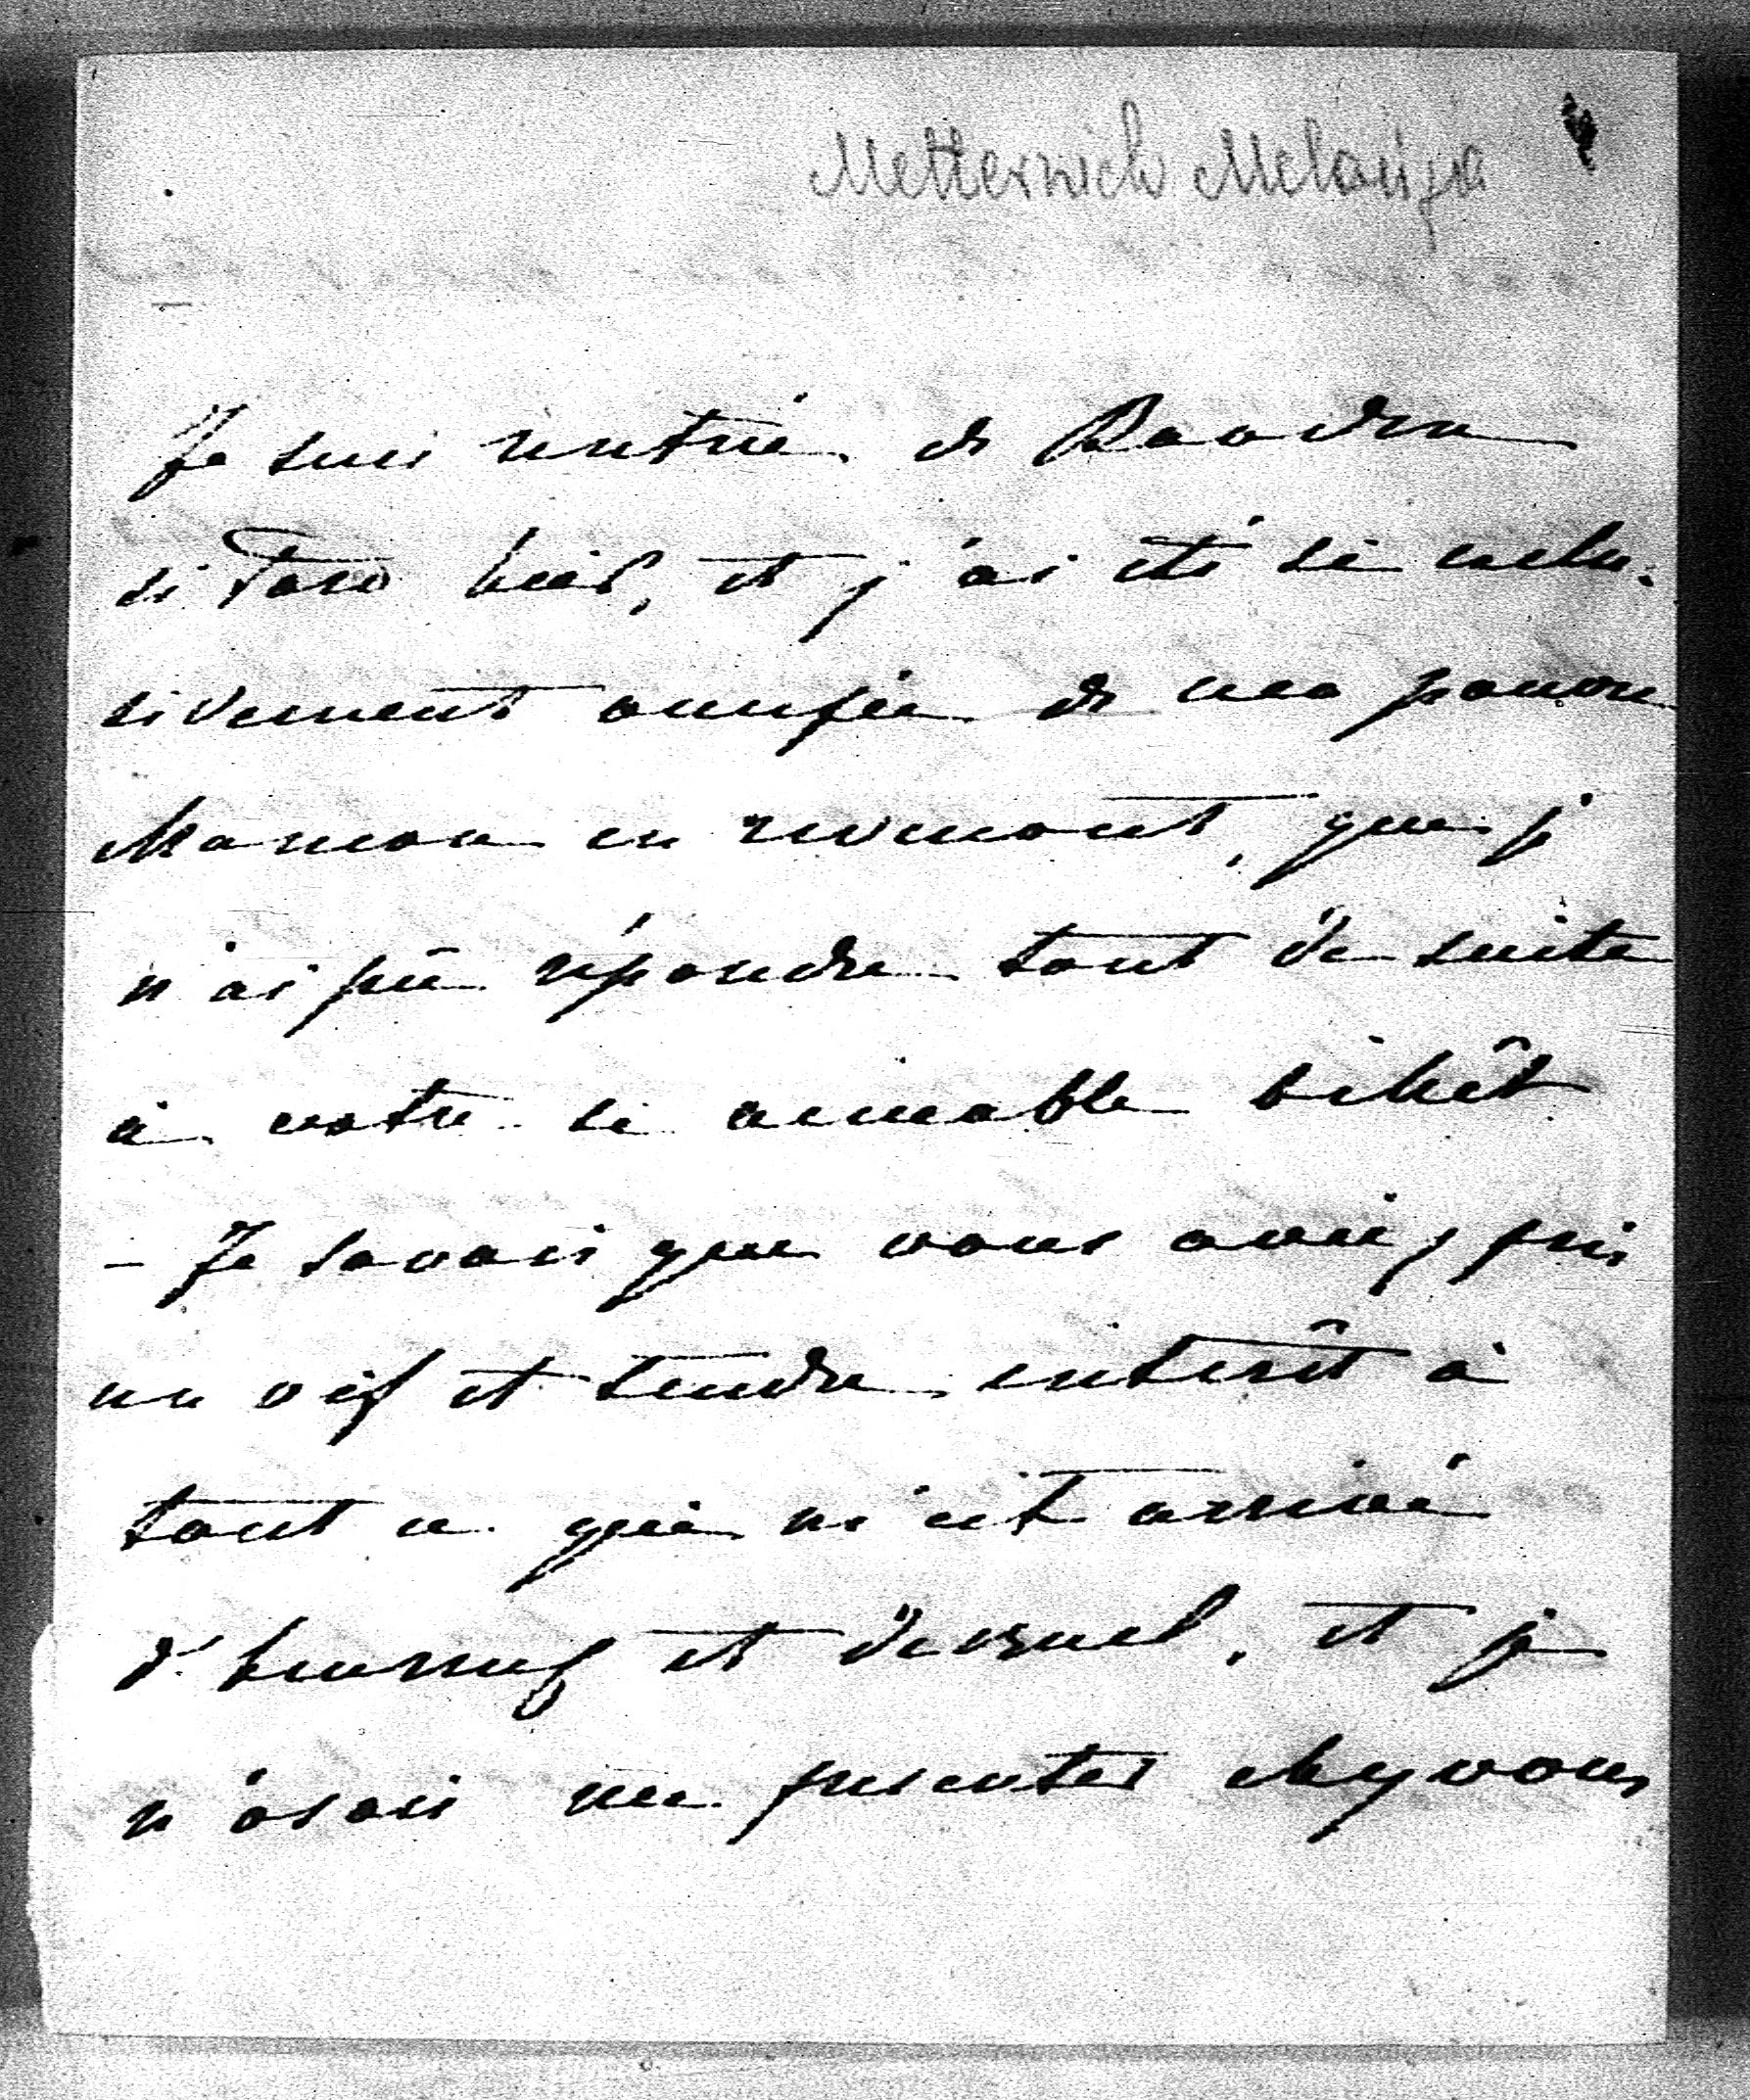 Metternich Melanja
Je suis rentrée de Baaden
si tard hier, et j'ai été si exclu-
sivement occupée de ma pauvre
Maman en revenant, que je
n'ai pû répondre tout de suite
à votre si aimable billêt
– Je savais que vous aviez pris
un vif et tendre intérêt à
tout ce qui m'est arrivé
d'heureux et de cruel, et je
n'osais me presenter chez vous